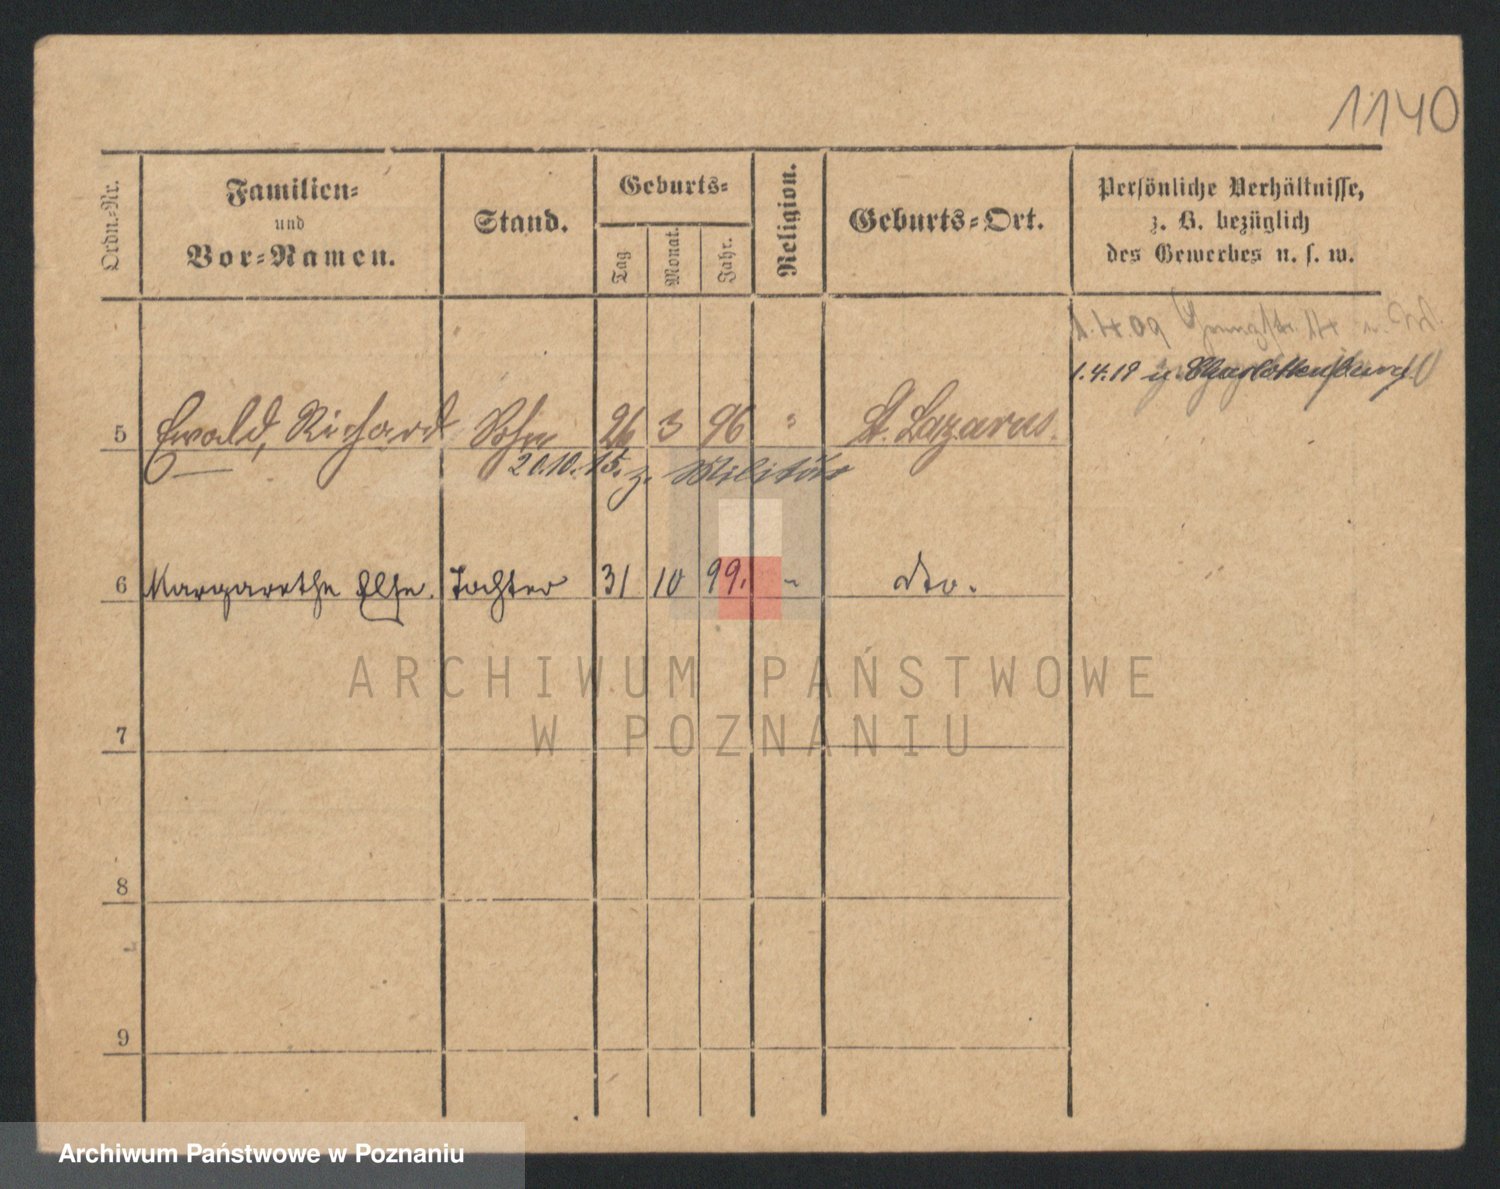 1140
Ordn.-Nr.
Familien-
und
Vor-Namen.
Stand.
Geburts-
Tag
Monat.
Jahr.
Religion.
Geburts-Ort.
Persönliche Verhältnisse,
z. B. bezüglich
des Gewerbes u. s. w.
1.4.09
1.4.18 n. Charlottenburg
5 Ewald, Richard Sohn 26 3 96 " St. Lazarus.
20.10.15. z. Militär
6 Margarethe Else. Tochter 31 10 99. - dto.
ARCHIWUM PAŃSTWOWE
W POZNANIU
7
8
9
Archiwum Państwowe w Poznaniu